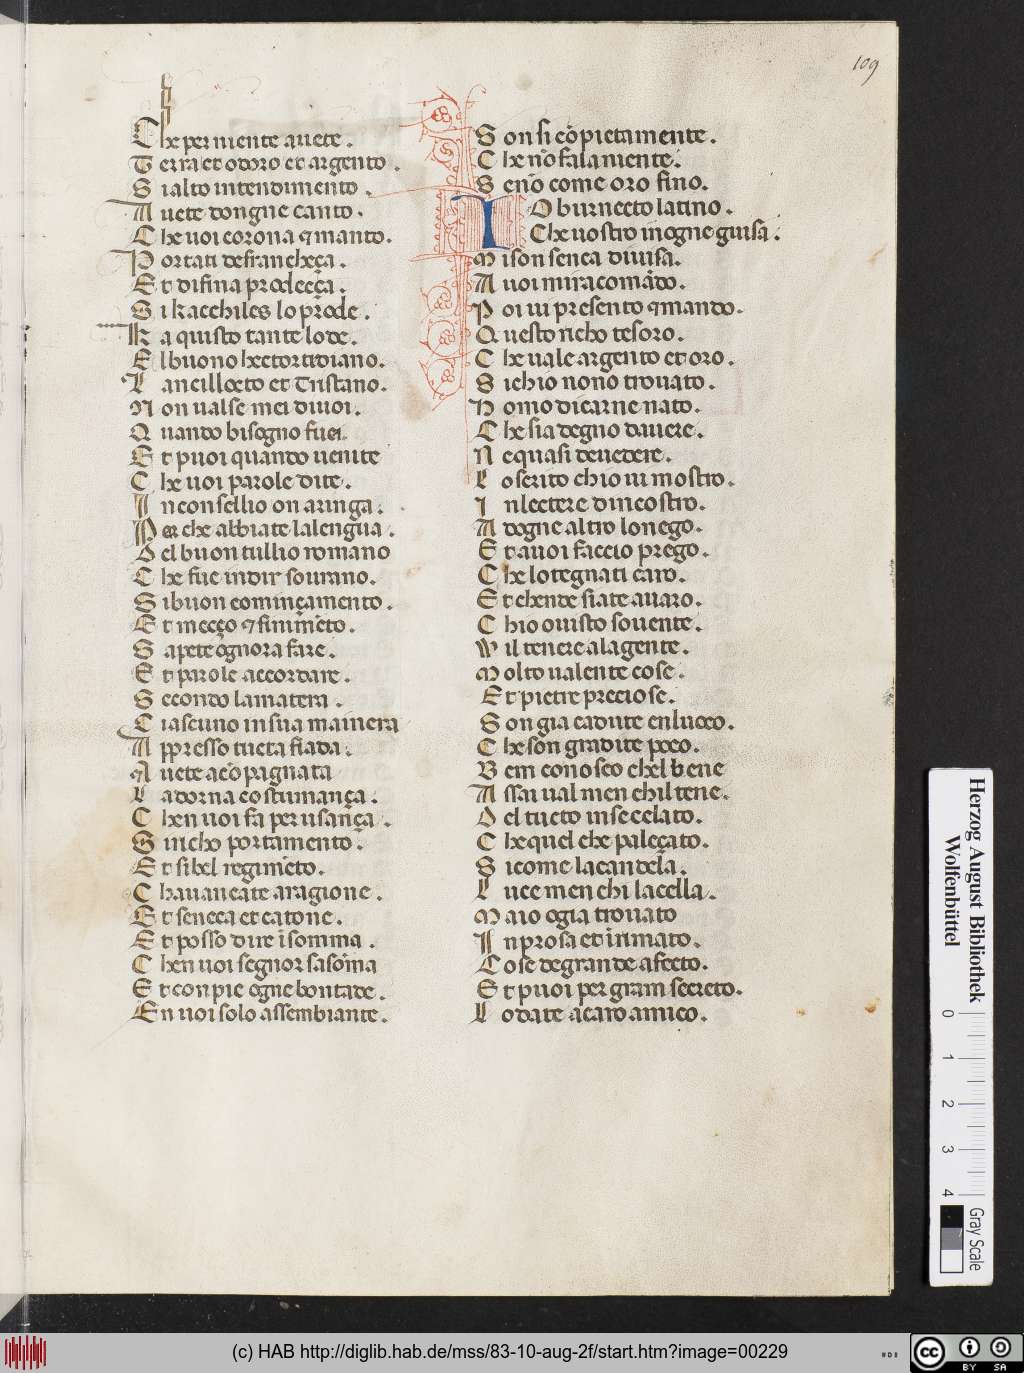 109
Che per niente auete.
Terra et odoro et argento.
Si alto intendimento.
Auete dongne canto.
Che uoi corona ⁊ manto.
Portati de francheça.
Et difina prodecça.
Si k acchiles lo prode.
Ka quisto tante lode.
El buono hector troiano.
Lancilloeto et Tristano.
Non ualse mei di uoi.
Quando bisogno fuei.
Et puoi quando uenite
Che uoi parole dite.
In consellio o n aringa.
Per che abbiate la lengua.
Del buon tullio romano
Che fue in dir sourano.
Si buon comminçamento.
Et mecço ⁊ finimēto.
Sapete ōgnora fare.
Et parole accordare.
Secondo la matera.
Ciascuno in sua mainera
Appresso tucta fiada.
Auete acō pagnata
Ladorna costumança.
Chen uoi fa per usança.
Si richo portamento.
Et si bel regimēto.
Chauançate a ragione.
Et seneca et catone.
Et posso dire ī somma.
Chen uoi segnor sasōma
Et conpie ogne bontade.
En uoi solo assembiante.
Son si cō pieta mente.
Che nō fala niente.
Se nō come oro fino.
IO burnecto latino.
Che uostro in ogne guisa.
Mi son senca diuisa.
A uoi mi racomādo.
Poi ui presento ⁊ mando.
Questo richo tesoro.
Che uale argento et oro.
Si chio non o trouato.
Homo di carne nato.
Che sia degno dauere.
Ne quasi de uedere.
Lo scrito chio ui mostro.
In lectere dincostro.
A dogne altro lo nego.
Et a uoi faccio prego.
Che lo tegnati caro.
Et chende siate auaro.
Chi o uisto souente.
Vil tenere a la gente.
Molto ualente cose.
Et pietre preciose.
Son gia cadute en luoco.
Che son gradite poco.
Bem conosco chel bene
Assai ual men chil tene.
Del tucto in se celato.
Che quel che paleçato.
Si come la candela.
Luce men chi la cella.
Ma io o gia trouato
In prosa et in rimato.
Cose de grande afecto.
Et puoi per gram secreto.
Lo date a caro amico.
Herzog August Bibliothek
Wolfenbüttel
0 1 2 3 4
Gray Scale
(c) HAB http://diglib.hab.de/mss/83-10-aug-2f/start.htm?image=00229
cc BY SA